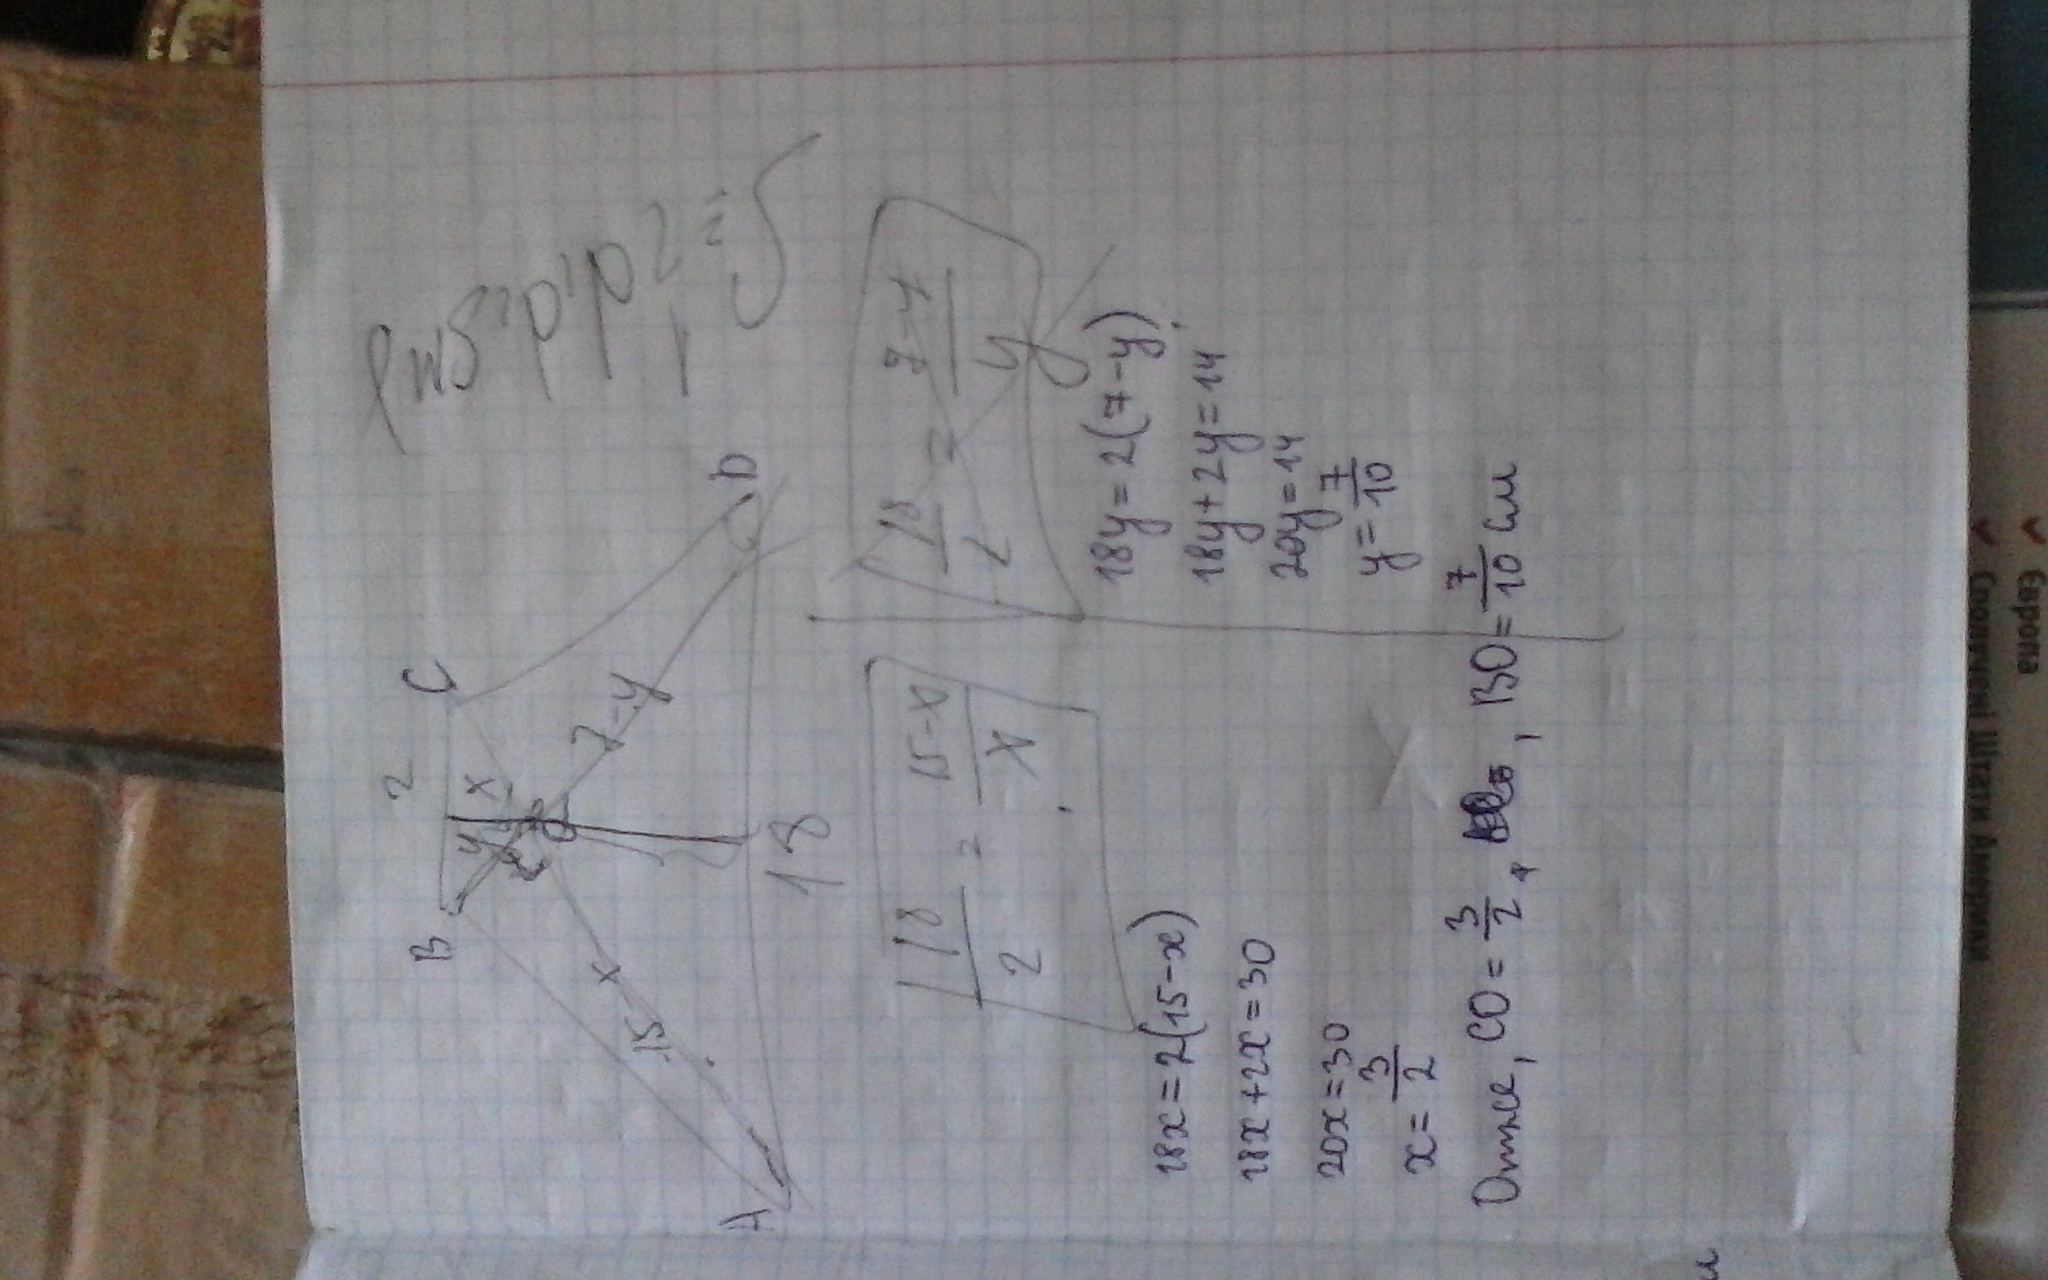 B 2 C
y x
O
15 x
7-y
A 18 D
18/2 = 15-x/x
18/2 = 7-y/y
18x=2(15-x)
18x+2x=30
20x=30
x=3/2
18y=2(7-y)
18y+2y=14
20y=14
y=7/10
Отже, CO=3/2, BO=7/10 см
Європа
Сполучені Штати Америки